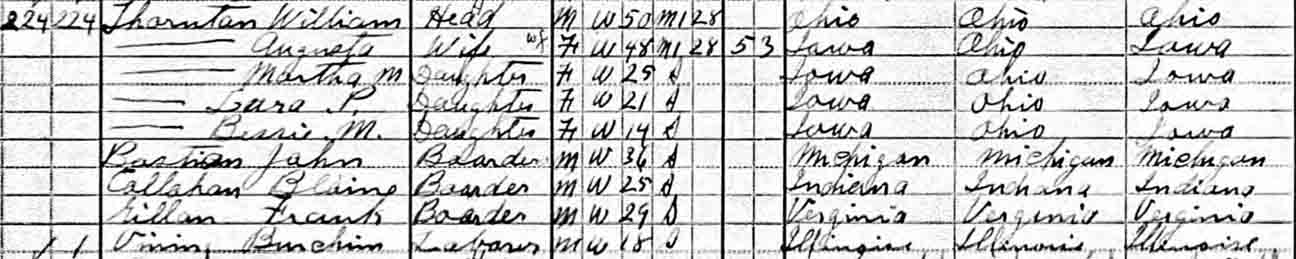 224 224 Thorntan William Head M W 50 M1 28 Ohio Ohio Ohio
Augusta Wife F W 48 M1 28 5 3 Iowa Ohio Iowa
Martha M Daughter F W 25 S Iowa Ohio Iowa
P. Daughter F W 21 S Iowa Ohio Iowa
Bessie M. Daughter F W 14 S Iowa Ohio Iowa
Bastian John Boarder M W 36 S Michigan Michigan Michigan
Callahan Blaine Boarder M W 25 S Indiana Indiana Indiana
Gillan Frank Boarder M W 29 S Verginia Verginia Verginia
M W 18 S Illinoise Illinoise Illinoise